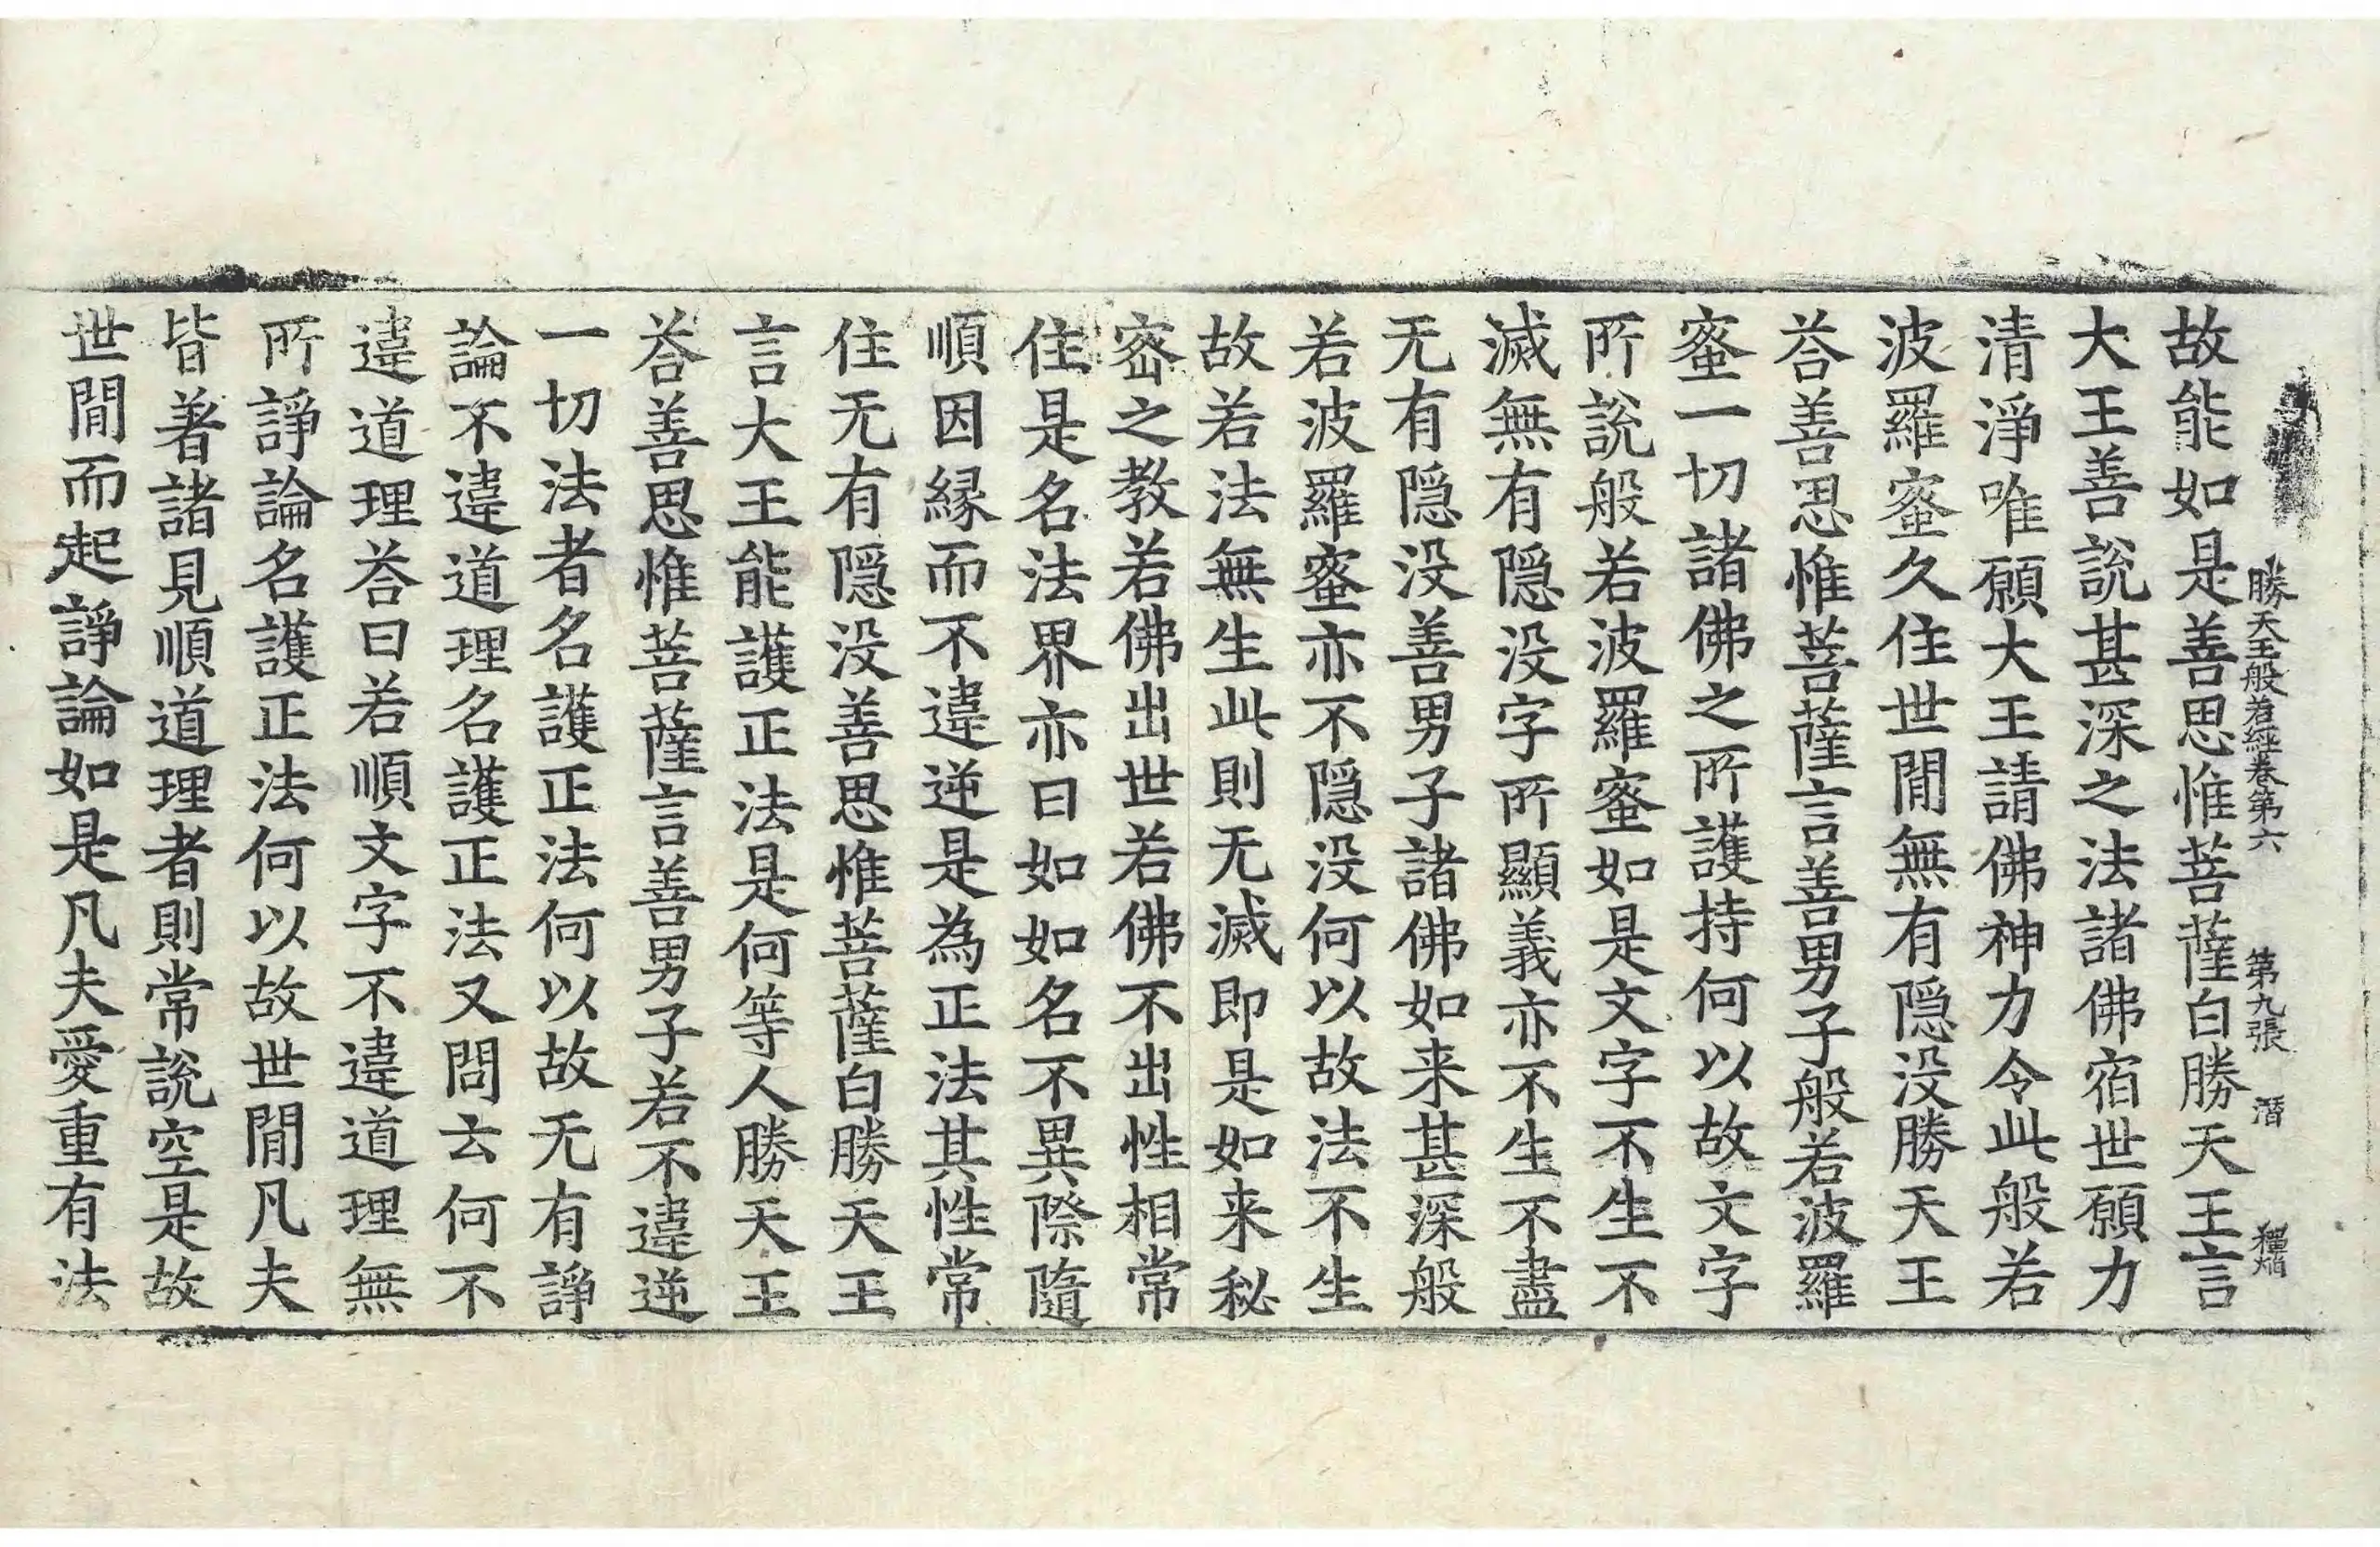 勝天王般若經卷第六　第九張　潛
故能如是善思惟菩薩白勝天王言
大王善說甚深之法諸佛宿世願力
清淨唯願大王請佛神力令此般若
波羅蜜久住世閒無有隠没勝天王
荅善思惟菩薩言善男子般若波羅
蜜一切諸佛之所護持何以故文字
所說般若波羅蜜如是文字不生不
滅無有隠没字所顯義亦不生不盡
无有隠没善男子諸佛如来甚深般
若波羅蜜亦不隠没何以故法不生
故若法無生此則无滅即是如来秘
密之教若佛出世若佛不出性相常
住是名法界亦曰如如名不異際隨
順因縁而不違逆是為正法其性常
住无有隠没善思惟菩薩白勝天王
言大王能護正法是何等人勝天王
荅善思惟菩薩言善男子若不違逆
一切法者名護正法何以故无有諍
論不違道理名護正法又問云何不
違道理荅曰若順文字不違道理無
所諍論名護正法何以故世閒凡夫
皆著諸見順道理者則常說空是故
世閒而起諍論如是凡夫愛重有法